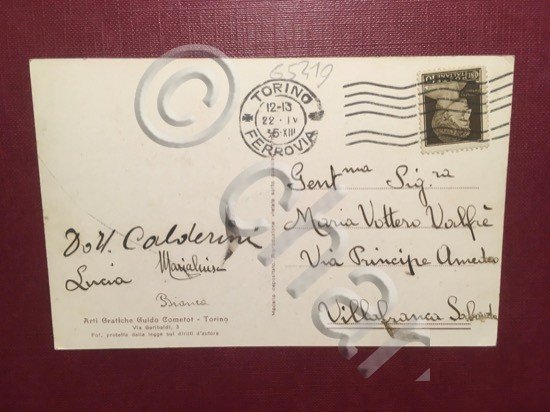 65319
TORINO
12-13
22·IV
35·XIII
FERROVIA
Gent.ma Sig.ra
Maria Vottero Valfrè
Via Principe Amedeo
Villafranca Sabauda
Dott. Calderini
Marialuisa
Lucia
Bianca
Arti Grafiche Guido Cometot - Torino
Via Garibaldi, 3
Fot. protetta dalla legge sui diritti d'autore
©